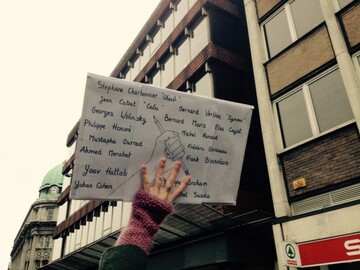 Stephane Charbonnier "Charb"
Jean Cabut "Cabu"
Bernard Verlhac "Tignous"
Georges Wolinsky
Bernard Maris
Elsa Cayat
Philippe Honoré
Mustapha Ourrad
Frédéric Boisseau
Ahmed Merabet
Franck Brinsolaro
Yoav Hattab
Yohan Cohen
SPAR